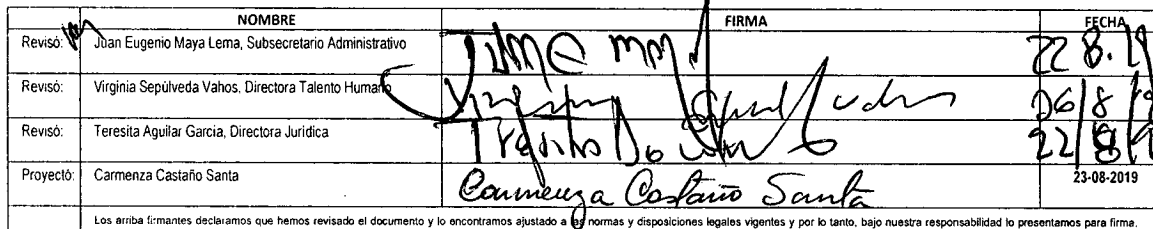 NOMBRE FIRMA FECHA
Revisó: Juan Eugenio Maya Lema, Subsecretario Administrativo 22.8.19
Revisó: Virginia Sepúlveda Vahos, Directora Talento Humano
Revisó: Teresita Aguilar García, Directora Jurídica
Proyectó: Carmenza Castaño Santa Carmenza Castaño Santa 23-08-2019
Los arriba firmantes declaramos que hemos revisado el documento y lo encontramos ajustado a las normas y disposiciones legales vigentes y por lo tanto, bajo nuestra responsabilidad lo presentamos para firma.